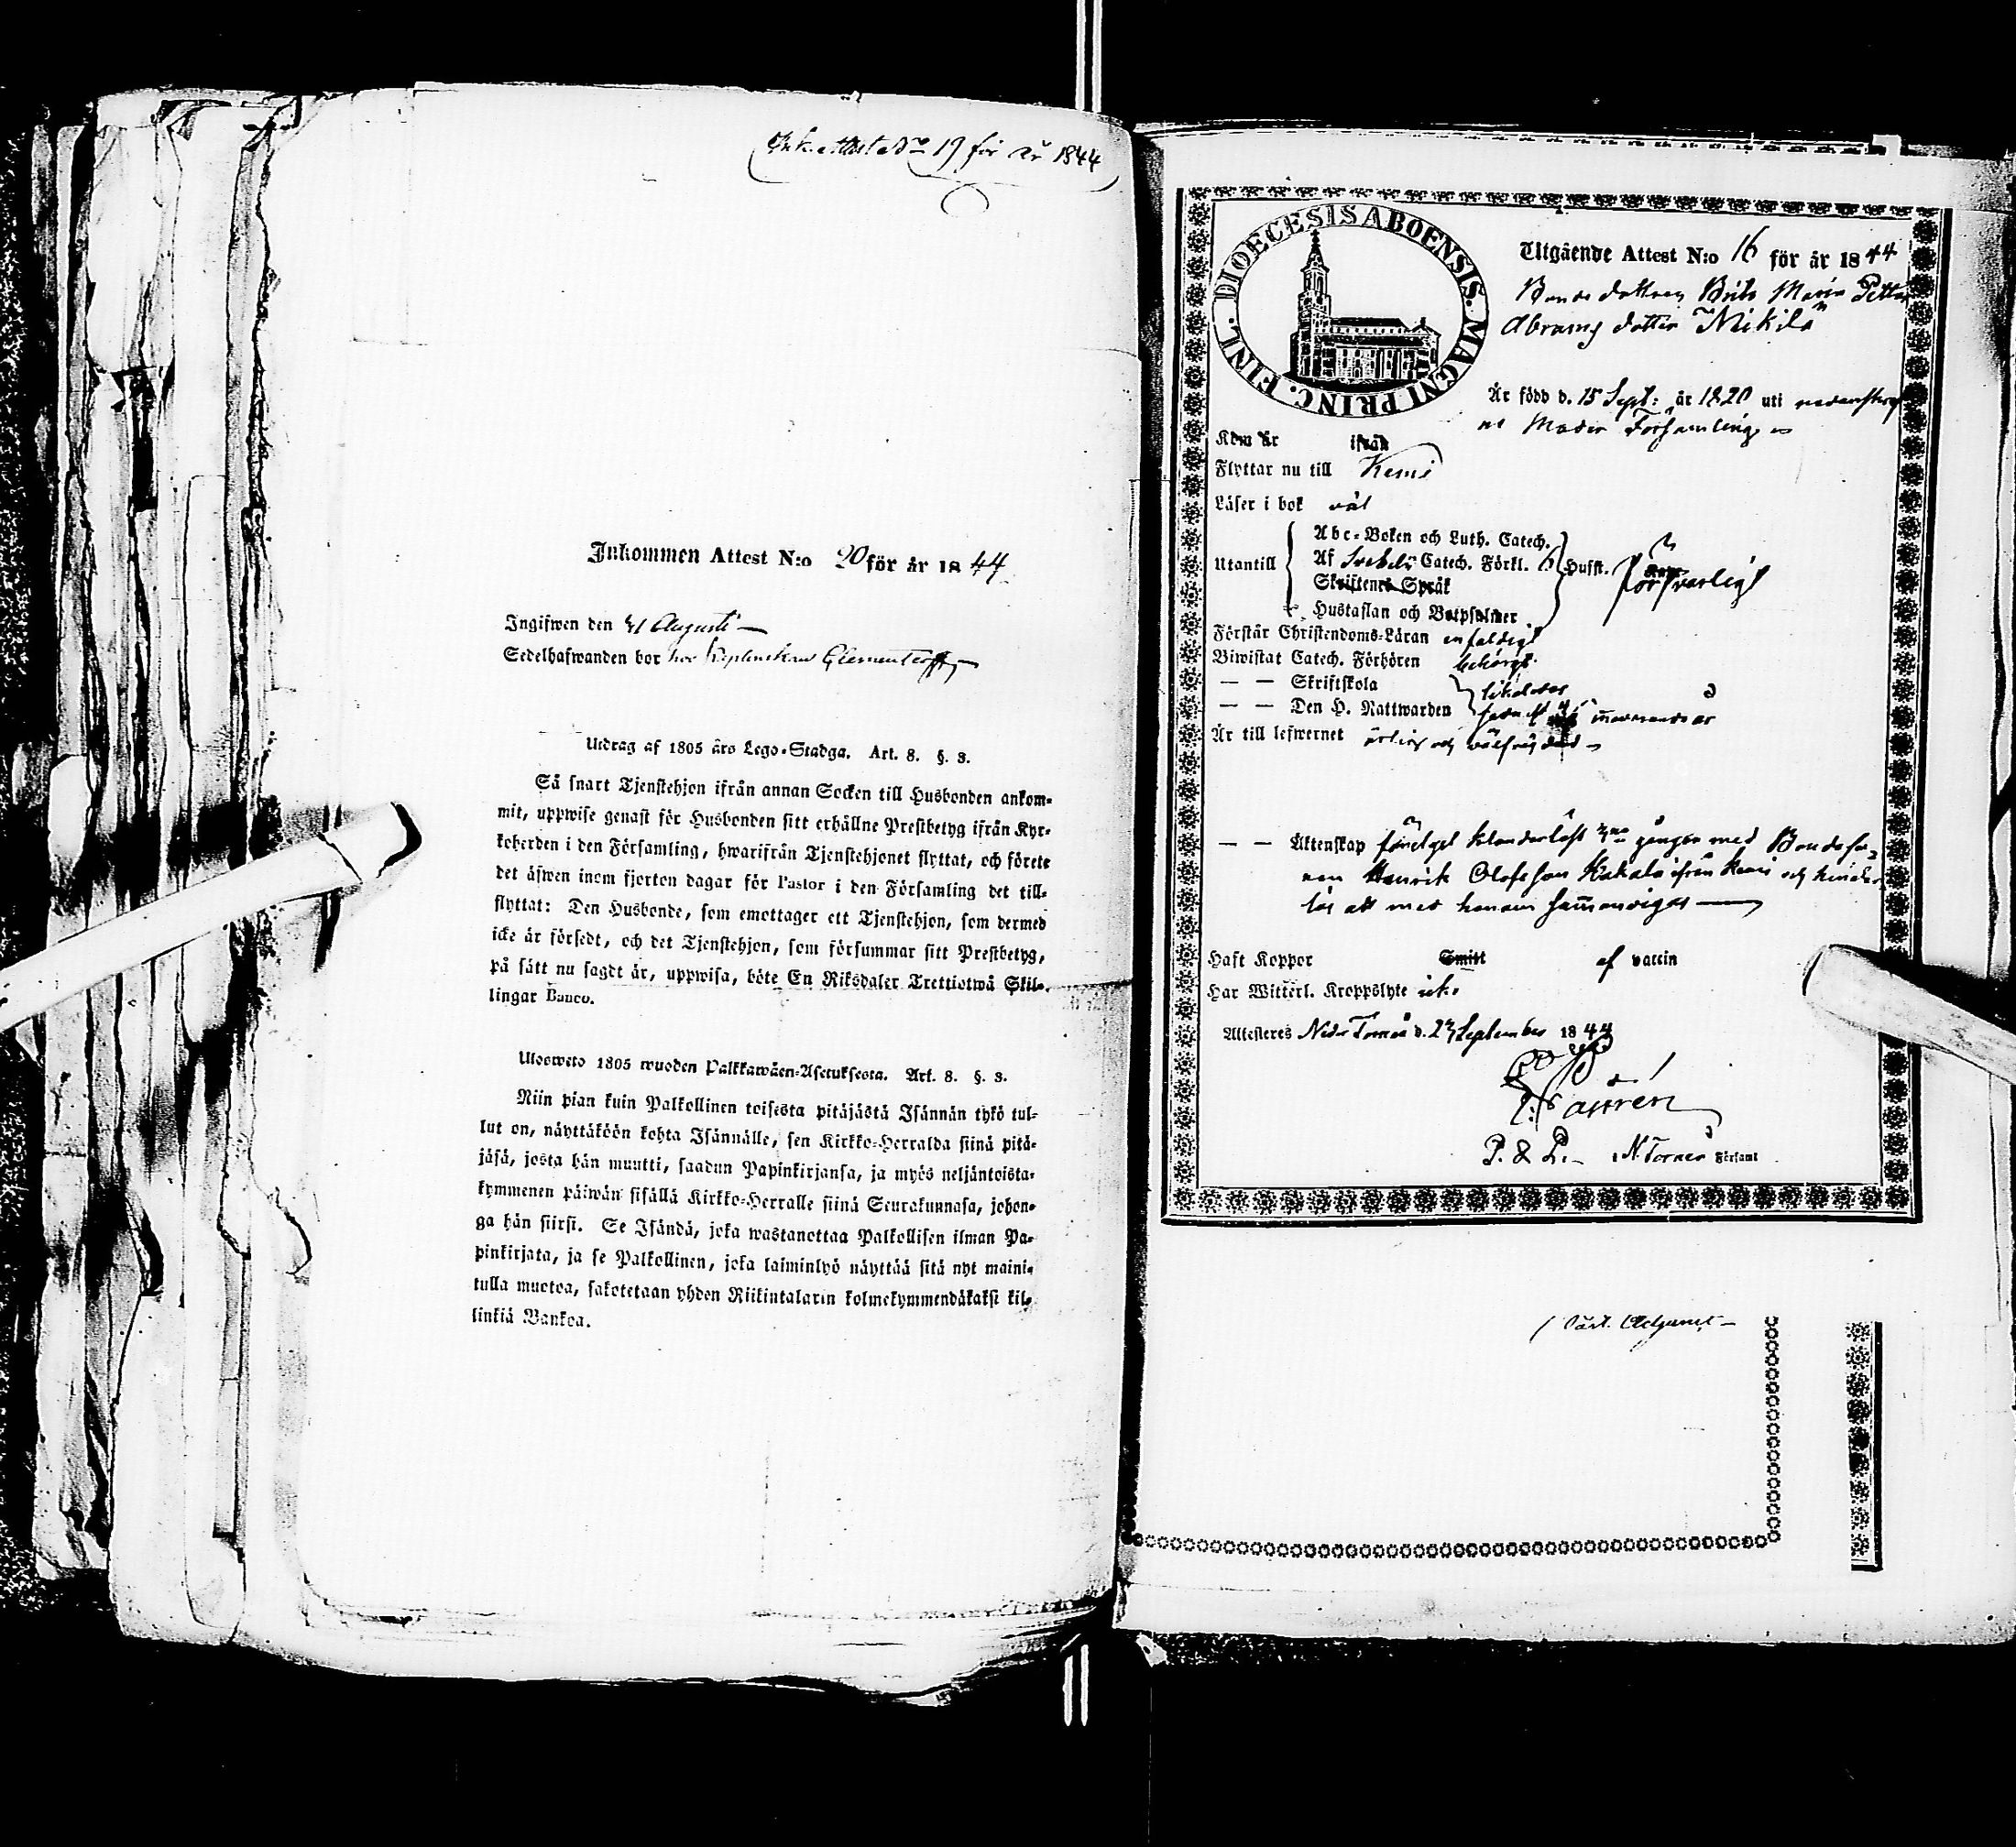 Ink. attest N:o 19 för år 1844
Inkommen Attest N:o 20 för år 1844
Ingifwen den 31 Augusti
Sedelhafwanden bor hos
Utdrag af 1805 års Lego-Stadga. Art. 8. §. 3.
Så snart Tjenstehjon ifrån annan Socken till Husbonden ankom-
mit, uppwise genast för Husbonden sitt erhållne Prestbetyg ifrån Kyr-
koherden i den Församling, hwarifrån Tjenstehjonet flyttat, och förete
det äfwen inom fjorton dagar för Pastor i den Församling det till-
flyttat: Den Husbonde, som emottager ett Tjenstehjon, som dermed
icke är försedt, och det Tjenstehjon, som försummar sitt Prestbetyg,
på sätt nu sagdt är, uppwisa, böte En Riksdaler Trettiotwå Skil-
lingar Banco.
Ulosweto 1805 wuoden Palkkawäen-Asetuksesta. Art. 8. §. 3.
Niin pian kuin Palkollinen toisesta pitäjästä Isännän tykö tul-
lut on, näyttäköön kohta Isännälle, sen Kirkko-Herralda siinä pitä-
jäsä, josta hän muutti, saadun Papinkirjansa, ja myös neljäntoista-
kymmenen päiwän sisällä Kirkko-Herralle siinä Seurakunnasa, johon-
ga hän siirsi. Se Isändä, joka wastanottaa Palkollisen ilman Pa-
pinkirjata, ja se Palkollinen, joka laiminlyö näyttää sitä nyt maini-
tulla muotoa, sakotetaan yhden Riikintalarin kolmekymmendäkaksi kil-
linkiä Bankoa.
DIOECESIS ABOENSIS. MAGNI PRINC. FINL.
Utgående Attest N:o 16 för år 1844
Bonde dottren Brita Maria Petter
Abrams dotter Mikilä
Är född d. 15 Sept: år 1820 uti
Moder Församling
Kom år ifrån
Flyttar nu till Kemi
Läser i bok väl
Utantill
Abc-Boken och Luth. Catech.
Af Svebelii Catech. Förkl.
Skriftenes Språk
Hustaflan och Botpsalmer
Husst.
försvarligt
Förstår Christendoms-Läran enfaldigt
Biwistat Catech. Förhören behörigt
— — Skriftskola likaledes
— — Den H. Nattwarden innevarande år
Är till lefwernet ärlig och välfrejdad
— — Äktenskap klanderlöst 3ne gånger med Bondeso-
nen Henrik Olofsson Kakala ifrån Kemi och hinder
lös att med honom sammanvigas
Haft Koppor Smitt af vaccin
Har Witterl. Kroppslyte icke
Attesteres Neder Torneå d. 23 September 1844
P. & P. N. Torneå Församl